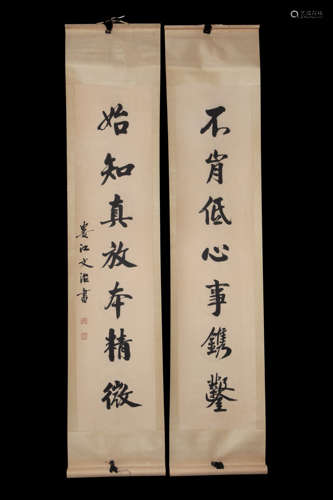 不肯低心事鐫鑿
始知真放本精微
婁江文治書